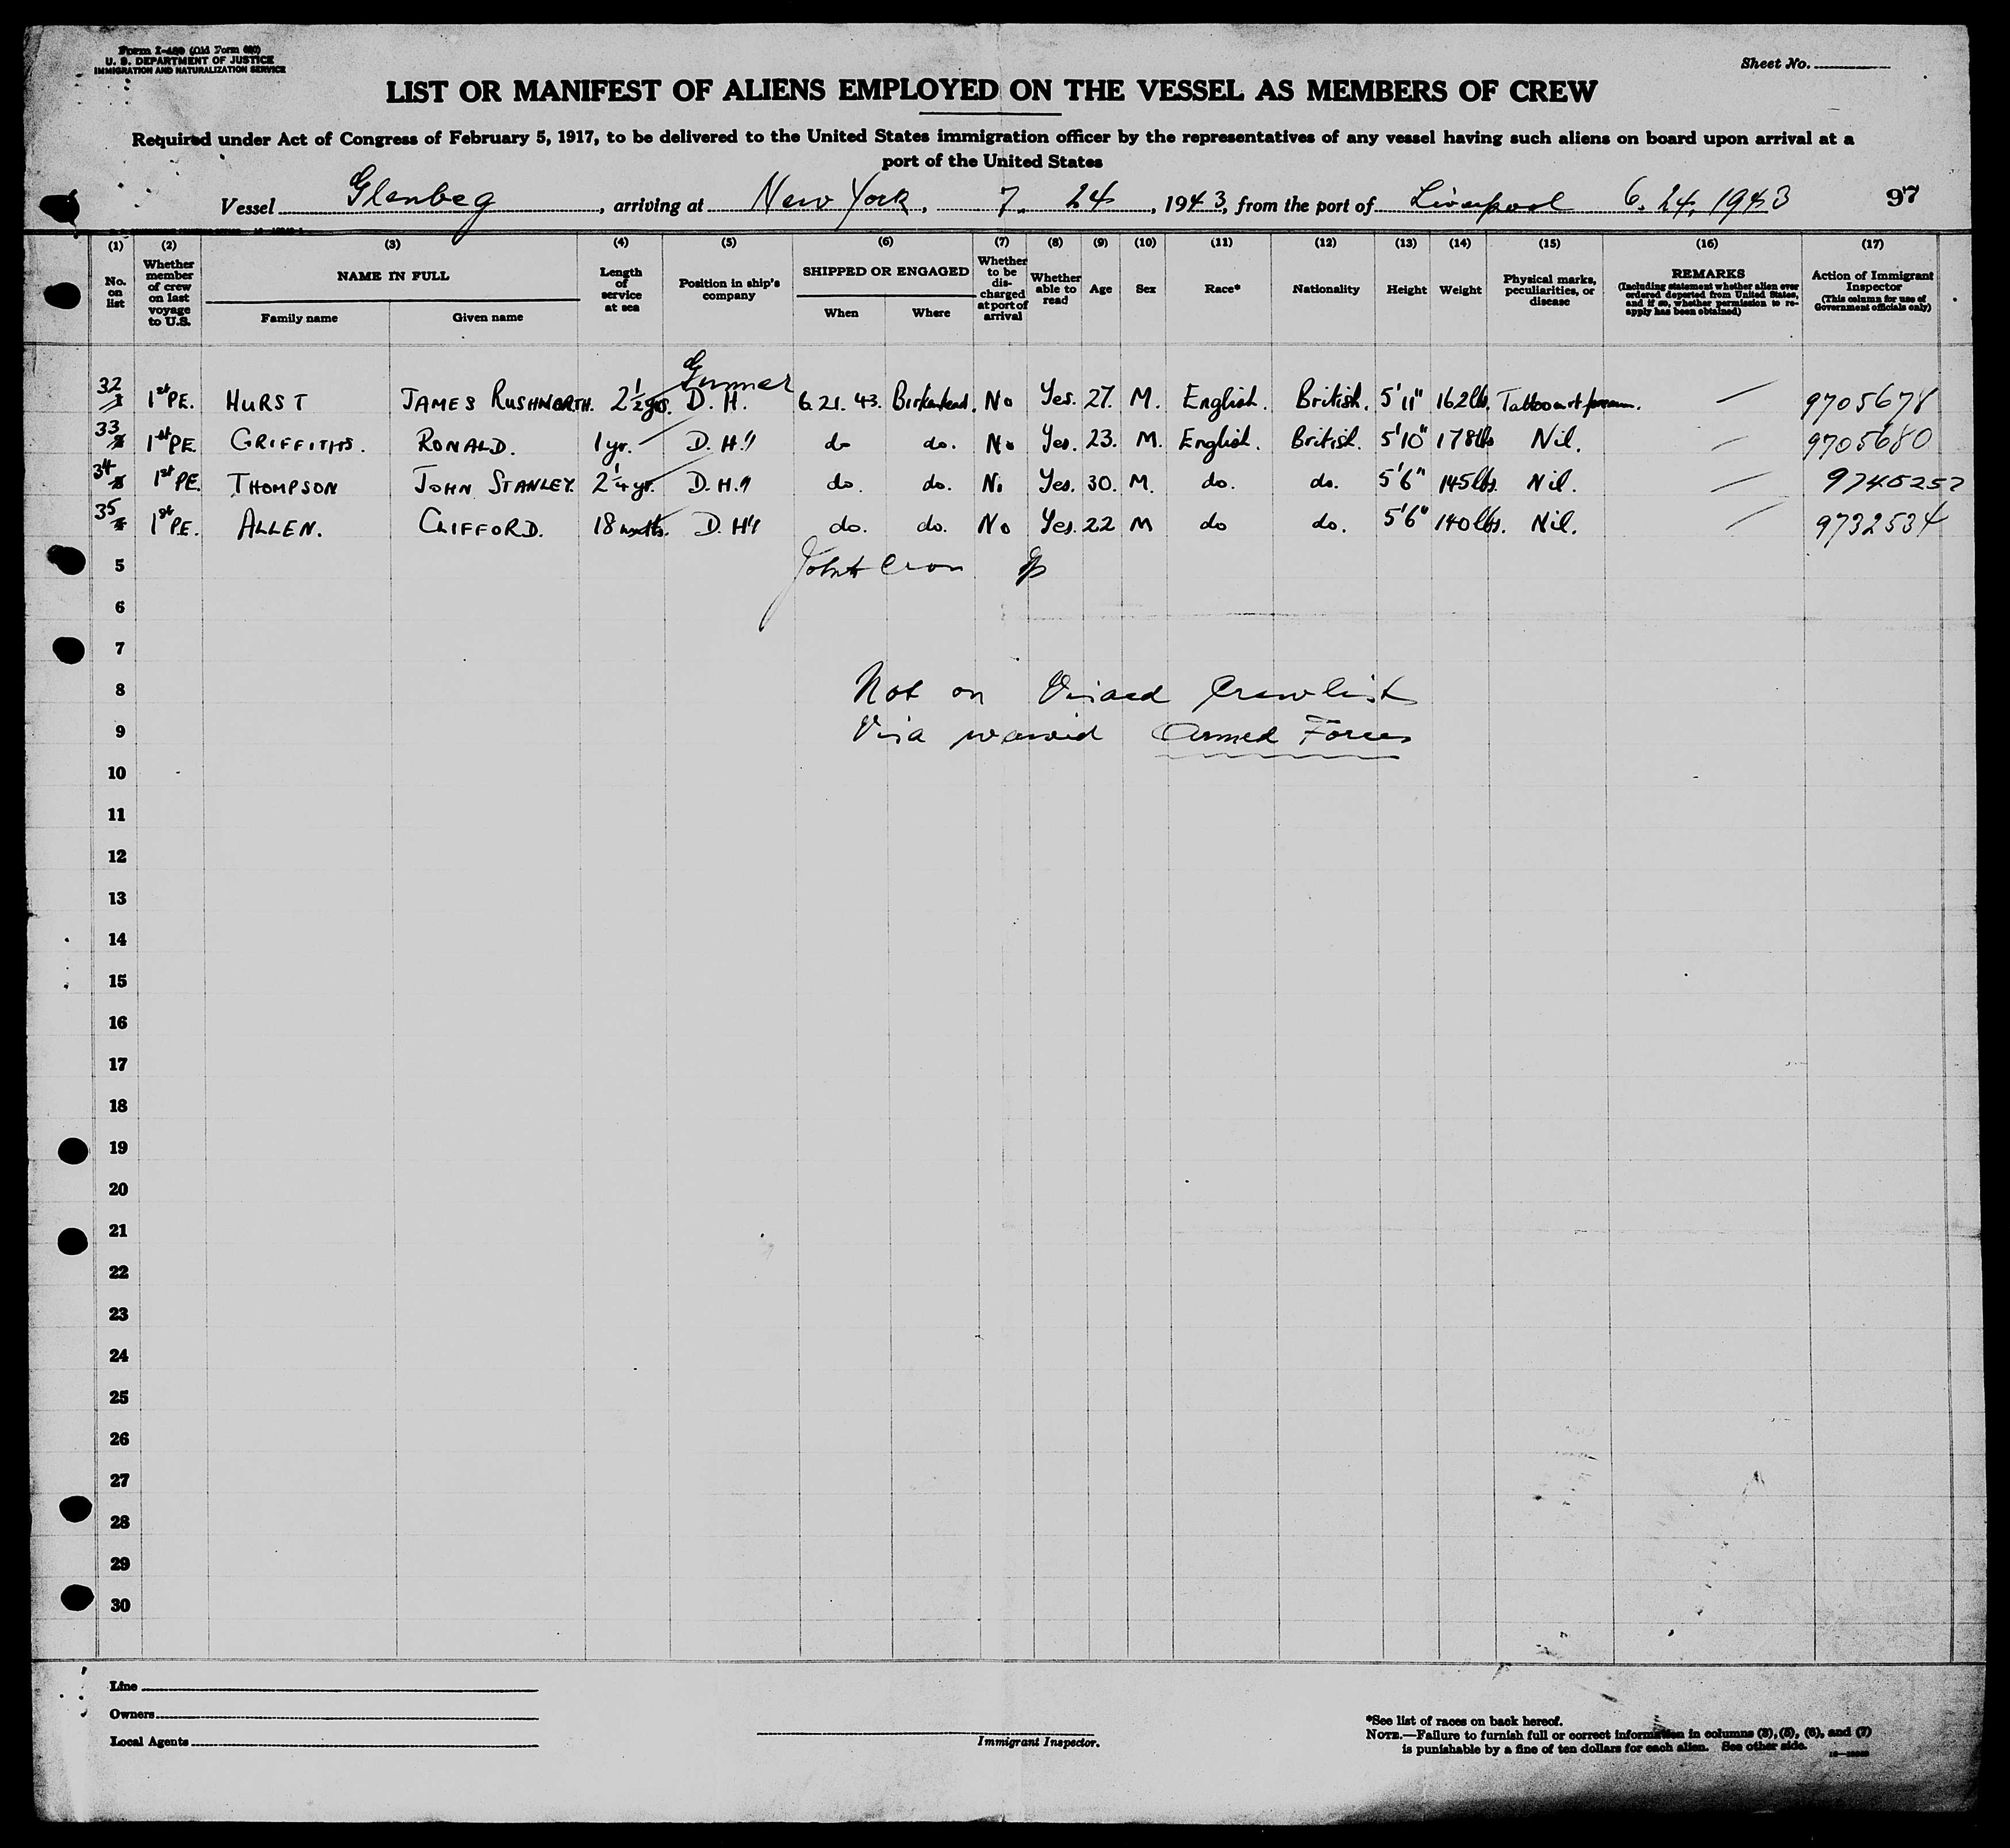 Form I-480 (Old Form 680)
U. S. DEPARTMENT OF JUSTICE
IMMIGRATION AND NATURALIZATION SERVICE
Sheet No.
LIST OR MANIFEST OF ALIENS EMPLOYED ON THE VESSEL AS MEMBERS OF CREW
Required under Act of Congress of February 5, 1917, to be delivered to the United States immigration officer by the representatives of any vessel having such aliens on board upon arrival at a
port of the United States
Vessel Glenbeg, arriving at New York, 7. 24, 1943, from the port of Liverpool 6. 24. 1943 97
(1) (2) (3) (4) (5) (6) (7) (8) (9) (10) (11) (12) (13) (14) (15) (16) (17)
No. on list
Whether member of crew on last voyage to U.S.
NAME IN FULL
Family name Given name
Length of service at sea
Position in ship's company
SHIPPED OR ENGAGED
When Where
Whether to be discharged at port of arrival
Whether able to read
Age
Sex
Race*
Nationality
Height
Weight
Physical marks, peculiarities, or disease
REMARKS
(Including statement whether alien ever ordered deported from United States, and if so, whether permission to reapply has been obtained)
Action of Immigrant Inspector
(This column for use of Government officials only)
Gunner
32 1st PE. HURST JAMES RUSHWORTH. 2 1/2 yrs. D. H. 6. 21. 43. Birkenhead. No Yes. 27. M. English. British. 5'11" 162lbs. Tattoo on rt forearm. — 9705678
33 1st PE. GRIFFITHS. RONALD. 1 yr. D. H." do do. No Yes. 23. M. English. British. 5'10" 178lbs Nil. — 9705680
34 1st PE. THOMPSON JOHN STANLEY. 2 1/4 yr. D. H." do. do. No Yes. 30. M. do. do. 5'6" 145lbs. Nil. — 9745252
35 1st PE. ALLEN. CLIFFORD. 18 mths. D. H." do. do. No Yes. 22 M do do. 5'6" 140lbs. Nil. — 9732534
5
6
7
8 Not on Visaed Crewlist
9 Visa waived Armed Forces
10
11
12
13
14
15
16
17
18
19
20
21
22
23
24
25
26
27
28
29
30
Line
Owners
Local Agents
Immigrant Inspector.
*See list of races on back hereof.
NOTE.—Failure to furnish full or correct information in columns (3), (5), (6), and (7)
is punishable by a fine of ten dollars for each alien. See other side.